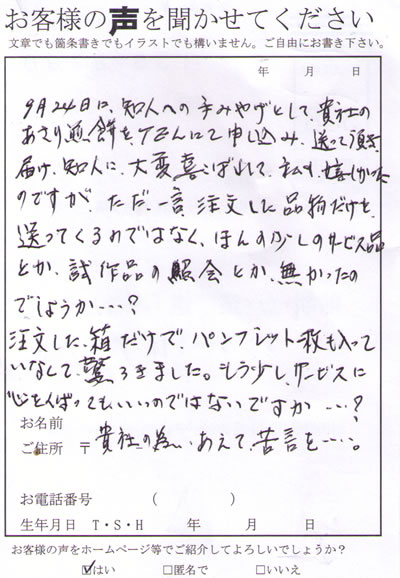 お客様の声を聞かせてください
文章でも箇条書きでもイラストでも構いません。ご自由にお書き下さい。
年 月 日
9月24日に、知人への手みやげとして、貴社の
あさり煎餅を、TELにて申し込み、送って頂き
届け、知人に、大変喜こばれて、私も、嬉しかった
のですが、ただ、一言、注文した品物だけを、
送ってくるのではなく、ほんの少しのサービス品
とか、試作品の照会とか、無かったの
でしょうか…?
注文した、箱だけで、パンフレット一枚も入って
いなくて、驚ろきました。もう少し、サービスに
心をくばってもいいのではないですか…?
お名前
ご住所 〒 貴社の為、あえて、苦言を…。
お電話番号 ( )
生年月日 T・S・H 年 月 日
お客様の声をホームページ等でご紹介してよろしいでしょうか?
☑はい □匿名で □いいえ